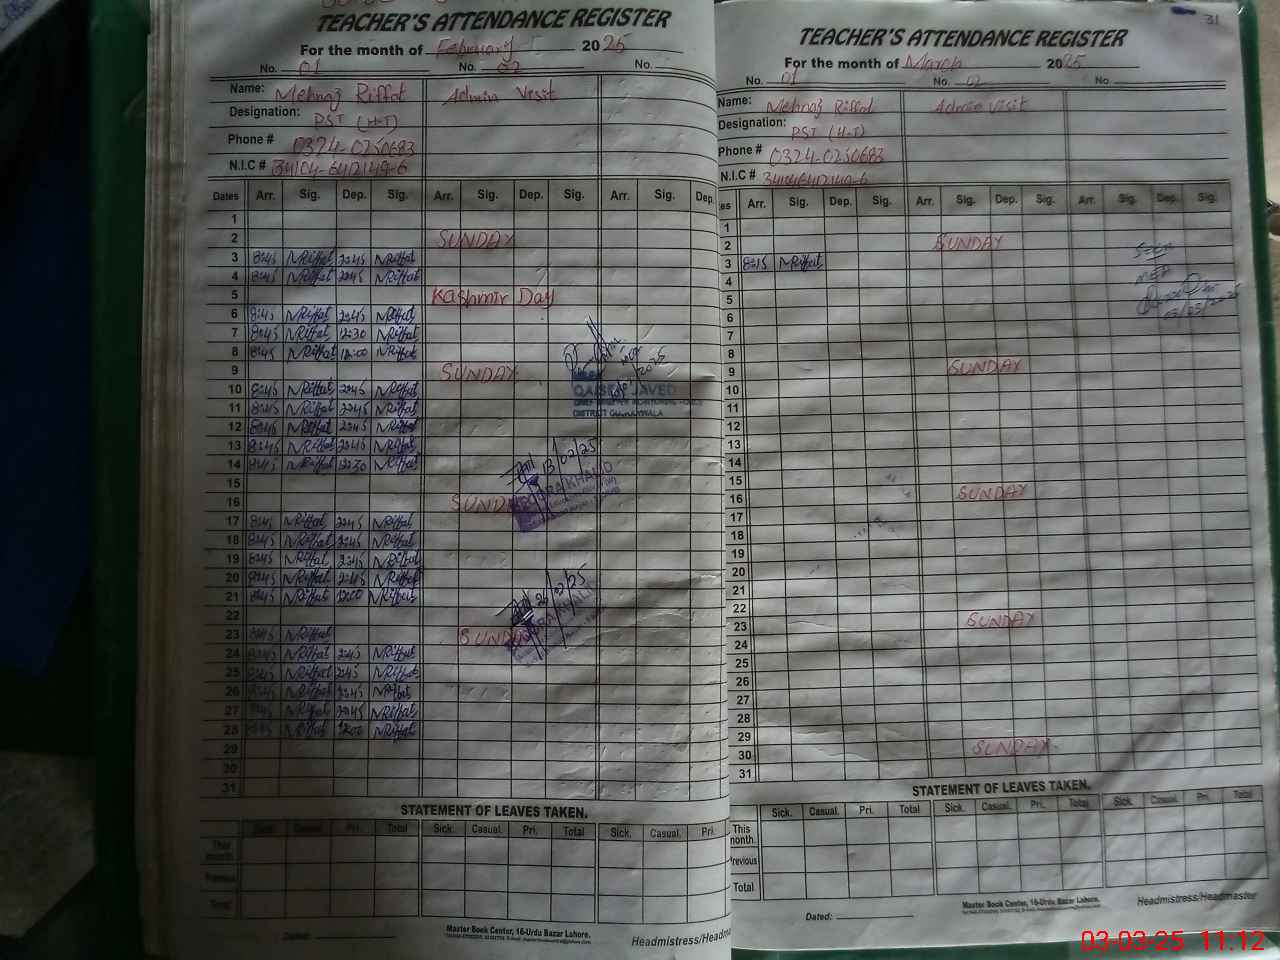 TEACHER'S ATTENDANCE REGISTER
For the month of February 2025
No. 01 No. 02 No.
Name: Mehnaz Riffat Admin Visit
Designation: PST (H-T)
Phone # 0324-0250683
N.I.C # 34104-6412149-6
Dates Arr. Sig. Dep. Sig. Arr. Sig. Dep. Sig. Arr. Sig. Dep.
1
2 SUNDAY
3 8:45 NRiffat 2:45 NRiffat
4 8:45 NRiffat 2:45 NRiffat
5 Kashmir Day
6 8:45 NRiffat 2:45 NRiffat
7 8:45 NRiffat 12:30 NRiffat
8 8:45 NRiffat 12:00 NRiffat
9 SUNDAY
10 8:45 NRiffat 2:45 NRiffat
11 8:45 NRiffat 2:45 NRiffat
12 8:45 NRiffat 2:45 NRiffat
13 8:45 NRiffat 2:45 NRiffat
14 8:45 NRiffat 12:30 NRiffat
15
16 SUNDAY
17 8:45 NRiffat 2:45 NRiffat
18 8:45 NRiffat 2:45 NRiffat
19 8:45 NRiffat 2:45 NRiffat
20 8:45 NRiffat 2:45 NRiffat
21 8:45 NRiffat 12:00 NRiffat
22
23 8:45 NRiffat SUNDAY
24 8:45 NRiffat 2:45 NRiffat
25 8:45 NRiffat 2:45 NRiffat
26 8:45 NRiffat 2:45 NRiffat
27 8:45 NRiffat 2:45 NRiffat
28 8:45 NRiffat 12:00 NRiffat
29
30
31
QAISER JAVED
DISTRICT GUJRANWALA
13/02/25
KHALID
26/02/25
KHALID
STATEMENT OF LEAVES TAKEN.
Sick. Casual. Pri. Total Sick. Casual. Pri. Total Sick. Casual. Pri.
This month.
Previous
Total
Dated:
Master Book Center, 16-Urdu Bazar Lahore.
Headmistress/Headma
31
TEACHER'S ATTENDANCE REGISTER
For the month of March 2025
No. 01 No. 02 No.
Name: Mehnaz Riffat Admin Visit
Designation: PST (H-T)
Phone # 0324-0250683
N.I.C # 34104-6412149-6
es Arr. Sig. Dep. Sig. Arr. Sig. Dep. Sig. Arr. Sig. Dep. Sig.
1
2 SUNDAY
3 8:15 NRiffat
4
5
6
7
8
9 SUNDAY
10
11
12
13
14
15
16 SUNDAY
17
18
19
20
21
22
23 SUNDAY
24
25
26
27
28
29
30 SUNDAY
31
Seen
03/03/2025
STATEMENT OF LEAVES TAKEN.
Sick. Casual. Pri. Total Sick. Casual. Pri. Total Sick. Casual. Pri. Total
This month.
Previous
Total
Dated:
Master Book Center, 16-Urdu Bazar Lahore.
Headmistress/Headmaster
03-03-25 11:12